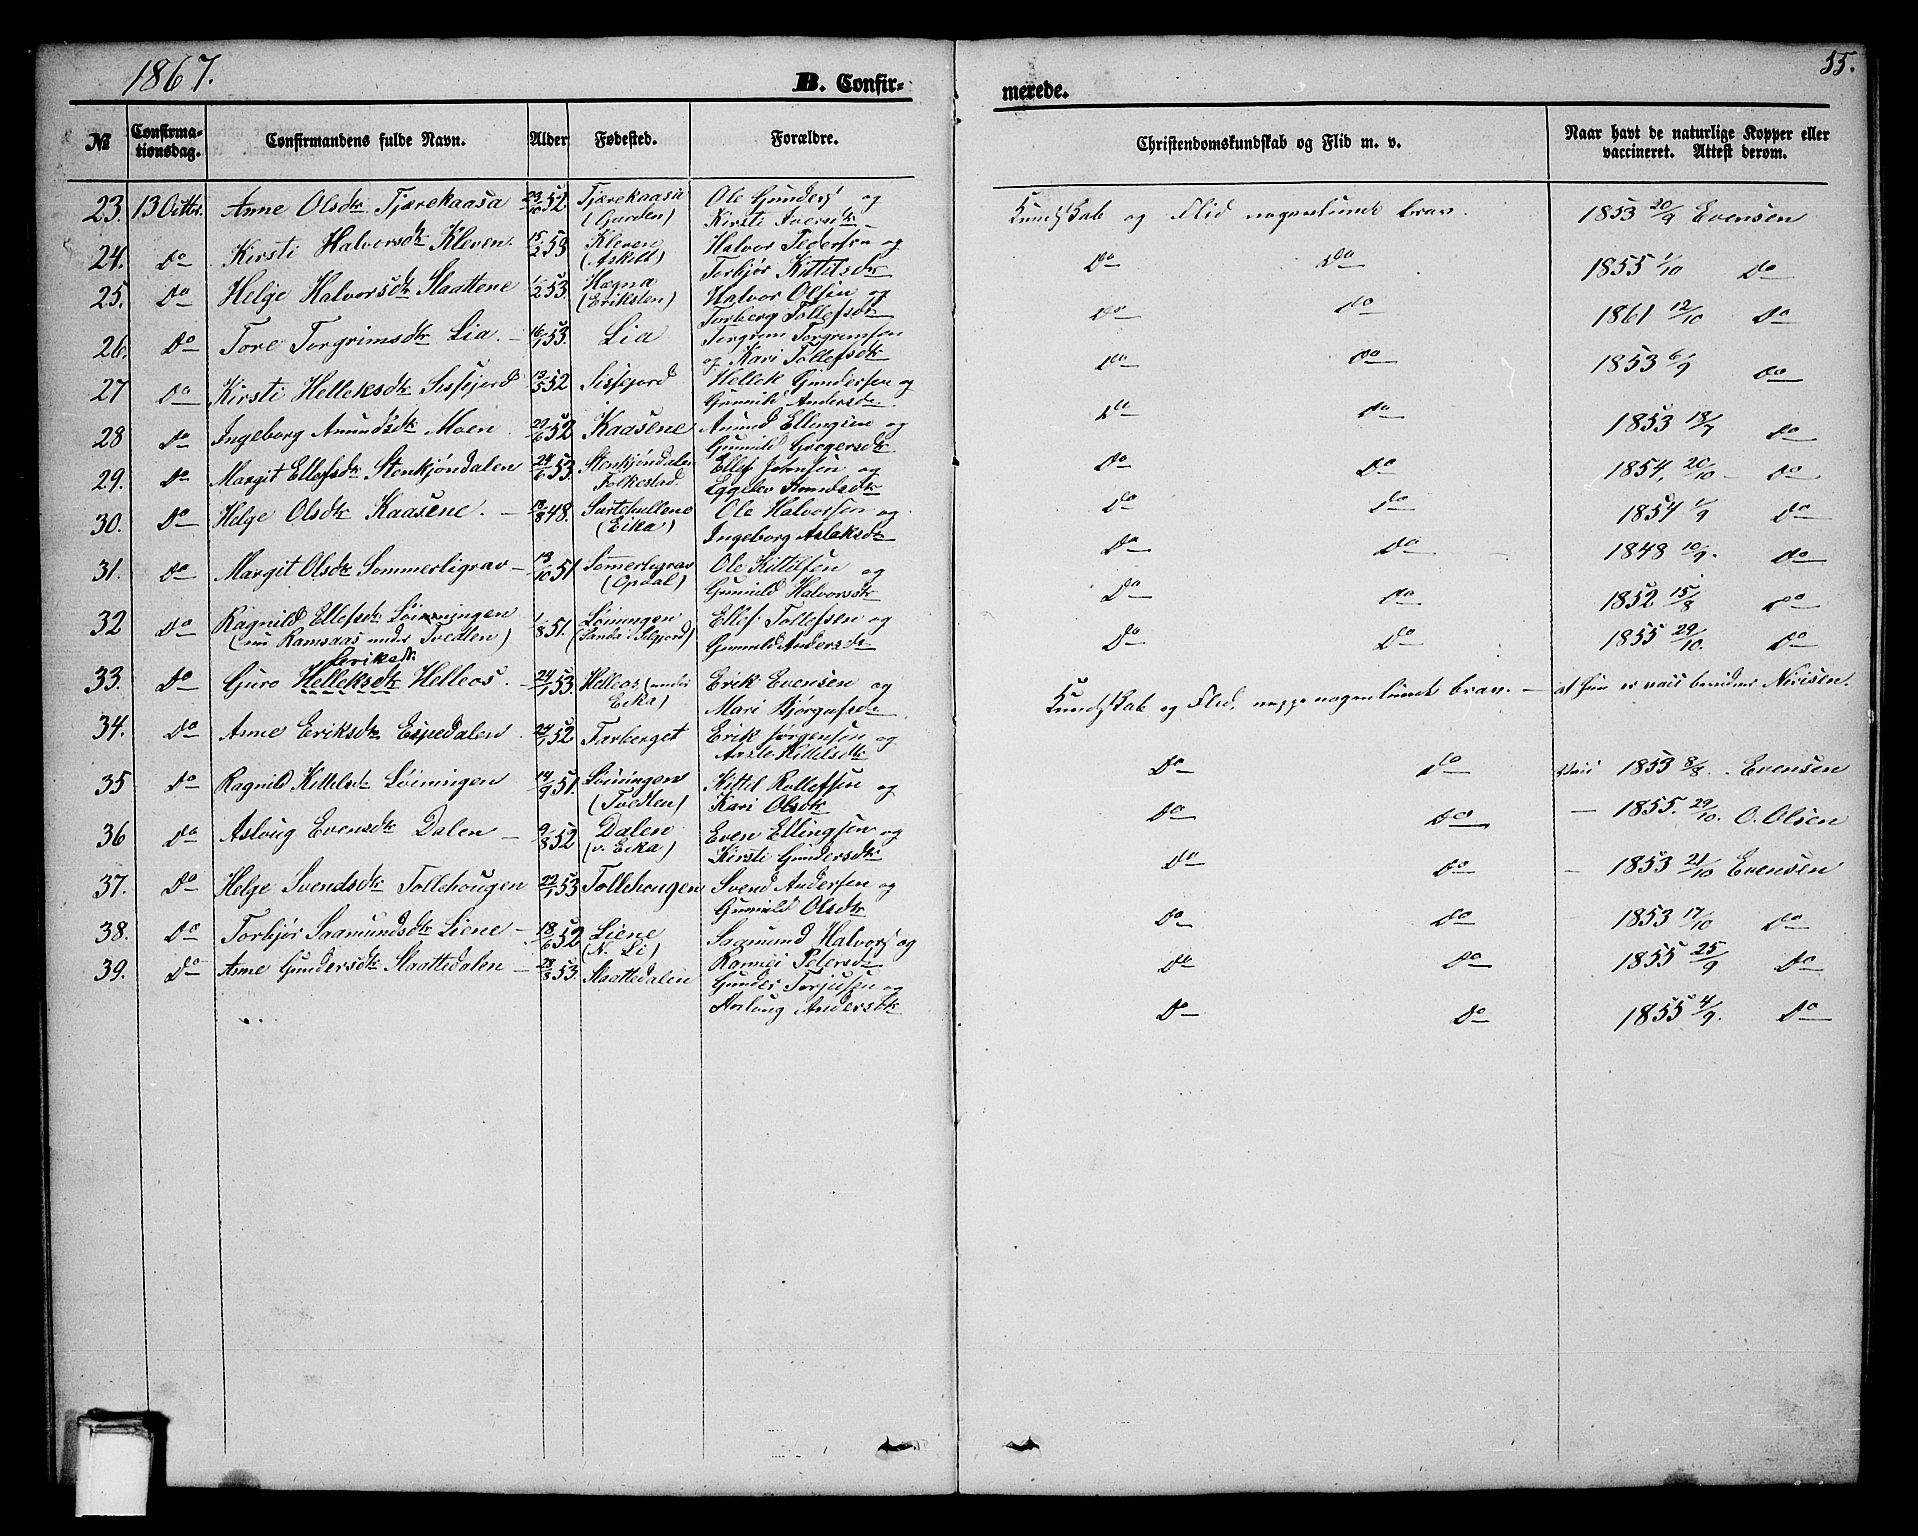 1867.
B. Confir-
merede.
55.
№ Confirma-tionsdag. Confirmandens fulde Navn. Alder Fødested. Forældre. Christendomskundskab og Flid m. v. Naar havt de naturlige Kopper eller vaccineret. Attest derom.
23. 13 Octbr. Anne Olsdtr Tjærekaasa 23/10 52 Tjærekaasa (Gaarden) Ole Gunders. og Kirsti Iversdtr Kundskab og Flid nogenlunde brav. 1853 20/9 Evensen
24. Do Kirsti Halvorsdtr Kleven. 15/2 53 Kleven (Askild) Halvor Pedersen og Torbjør Kittilsdtr Do Do 1855 1/10 Do
25. Do Helge Halvorsdtr Slaattene 1/2 53. Hagna (Eriksten) Halvor Olsen og Torberg Tollefsdtr Do Do 1861 12/10 Do
26. Do Tore Torgrimsdtr Lia. 16/1 53. Lia Torgrim Torgrimsen og Kari Tollefsdtr Do Do 1853 6/9 Do
27 Do Kirsti Helleksdtr Sisjord 13/5 52 Sisjord Hellek Gundersen og Gunnild Andersdtr. Do Do 1853 18/7 Do
28 Do Ingeborg Amundsdtr Moen 20/6 52 Kaasene Amund Ellingsen og Gunnild Gregersdtr Do Do 1854, 20/10 Do
29. Do Margit Ellefsdtr Stenkjøndalen 24/6 53. Stenkjøndalen Folkestad. Ellef Johnsen og Eggeløv Amundsdtr Do Do 1854 1/9 Do
30. Do Helge Olsdtr Kaasene. 18/8 48. Surtehullene (Eika) Ole Halvorsen og Ingeborg Aslaksdtr Do Do 1848 10/9. Do
31. Do Margit Olsdtr Sommerligrav 13/10 51 Sommerligrav (Opdal) Ole Kittilsen og Gunnild Halvorsdtr Do Do 1852 15/8 Do
32 Do Ragnild Ellefsdtr Løiningen (nu Ramsaas under Tvedten) 1/8 51. Løiningen (Landa i Silgjord) Ellef Tollefsen og Gunnild Andersdtr Do Do 1855 29/10. Do
Eriksdtr
33. Do Guro Helleksdtr Helleos. 24/1 53. Helleos (under Eika) Erik Evensen og Mari Bjørgufsdtr Kundskab og Flid, neppe nogenlunde brav. at hun er vacc.
34. Do Anne Eriksdtr Espedalen 24/1 52 Tarberget Erik Jørgensen og Aaste Kittelsdtr Do Do Vacc 1853 8/8. Evensen
35 Do Ragnild Kittelsdtr Løiningen 14/9 51. Løiningen (Tvedten) Kittil Rollefsen og Kari Olsdtr Do Do 1855. 29/10. O. Olsen
36 Do Aslaug Evensdtr Dalen 9/8 52 Dalen (v. Eika) Even Ellingsen og Kirsti Gundersdtr Do Do 1853 21/10 Evensen
37. Do Helge Svendsdtr Tollehougen 22/1 53 Tollehougen Svend Andersen og Gunnild Olsdtr Do Do 1853 17/10 Do
38. Do Torbjør Saamundsdtr Liene 18/6 52 Liene (N. Li) Saamund Halvors. og Rannei Petersdtr Do Do 1855 25/9 Do
39. Do Anne Gundersdtr Slaattedalen 28/8 53. Slaattedalen Gunder Torjusen og Aslaug Andersdtr Do Do 1855 4/9. Do